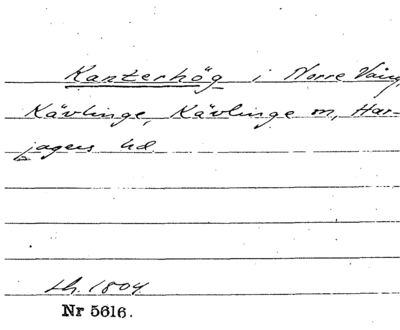 Kanterhög i Norre Vång,
Kävlinge, Kävlinge m, Har-
jagers hd
Lh. 1804.
Nr 5616.